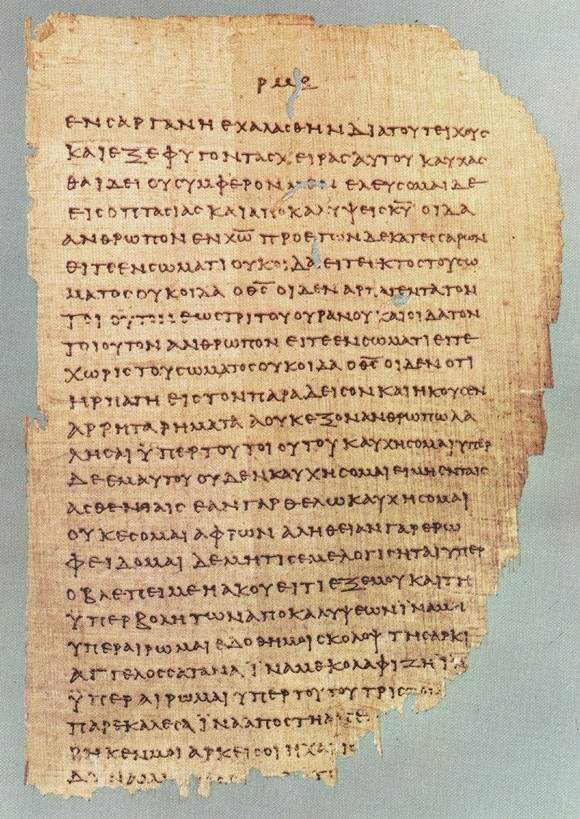 ΡΜΕ
ΕΝϹΑΡΓΑΝΗΕΧΑΛΑϹΘΗΝΔΙΑΤΟΥΤΕΙΧΟΥϹ
ΚΑΙΕΞΕΦΥΓΟΝΤΑϹΧΕΙΡΑϹΑΥΤΟΥΚΑΥΧΑϹ
ΘΑΙΔΕΙΟΥϹΥΜΦΕΡΟΝΜΕΝΕΛΕΥϹΟΜΑΙΔΕ
ΕΙϹΟΠΤΑϹΙΑϹΚΑΙΑΠΟΚΑΛΥΨΕΙϹΚ̅Υ̅ΟΙΔΑ
ΑΝΘΡΩΠΟΝΕΝΧ̅Ω̅ΠΡΟΕΤΩΝΔΕΚΑΤΕϹϹΑΡΩΝ
ΕΙΤΕΕΝϹΩΜΑΤΙΟΥΚΟΙΔΑΕΙΤΕΙΚΤΟϹΤΟΥϹΩ
ΜΑΤΟϹΟΥΚΟΙΔΑΟΘ̅Ϲ̅ΟΙΔΕΝΑΡΠΑΓΕΝΤΑΤΟΝ
ΤΟΙΟΥΤΟΝΕΩϹΤΡΙΤΟΥΟΥΡΑΝΟΥΚΑΙΟΙΔΑΤΟΝ
ΤΟΙΟΥΤΟΝΑΝΘΡΩΠΟΝΕΙΤΕΕΝϹΩΜΑΤΙΕΙΤΕ
ΧΩΡΙϹΤΟΥϹΩΜΑΤΟϹΟΥΚΟΙΔΑΟΘ̅Ϲ̅ΟΙΔΕΝΟΤΙ
ΗΡΠΑΓΗΕΙϹΤΟΝΠΑΡΑΔΕΙϹΟΝΚΑΙΗΚΟΥϹΕΝ
ΑΡΡΗΤΑΡΗΜΑΤΑΑΟΥΚΕΞΟΝΑΝΘΡΩΠΩΛΑ
ΛΗϹΑΙΫΠΕΡΤΟΥΤΟΙΟΥΤΟΥΚΑΥΧΗϹΟΜΑΙΥΠΕΡ
ΔΕΕΜΑΥΤΟΥΟΥΔΕΝΚΑΥΧΗϹΟΜΑΙΕΙΜΗΕΝΤΑΙϹ
ΑϹΘΕΝΙΑΙϹΕΑΝΓΑΡΘΕΛΩΚΑΥΧΗϹΟΜΑΙ
ΟΥΚΕϹΟΜΑΙΑΦΡΩΝΑΛΗΘΕΙΑΝΓΑΡΕΡΩ
ΦΕΙΔΟΜΑΙΔΕΜΗΤΙϹΕΜΕΛΟΓΙϹΗΤΑΙΥΠΕΡ
ΟΒΛΕΠΕΙΜΕΗΑΚΟΥΕΙΤΙΕΞΕΜΟΥΚΑΙΤΗ
ΫΠΕΡΒΟΛΗΤΩΝΑΠΟΚΑΛΥΨΕΩΝΪΝΑΜΗ
ΥΠΕΡΑΙΡΩΜΑΙΕΔΟΘΗΜΟΙϹΚΟΛΟΨΤΗϹΑΡΚΙ
ΑΓΓΕΛΟϹϹΑΤΑΝΑΪΝΑΜΕΚΟΛΑΦΙΖΗΪΝ
ΫΠΕΡΑΙΡΩΜΑΙΥΠΕΡΤΟΥΤΟΥΤΡΙϹ
ΠΑΡΕΚΑΛΕϹΑΪΝΑΑΠΟϹΤΗΑΠΕ
ΡΗΚΕΝΜΟΙΑΡΚΕΙϹΟΙΗΧΑΡΙϹ
ΔΥΝΑΜΙ